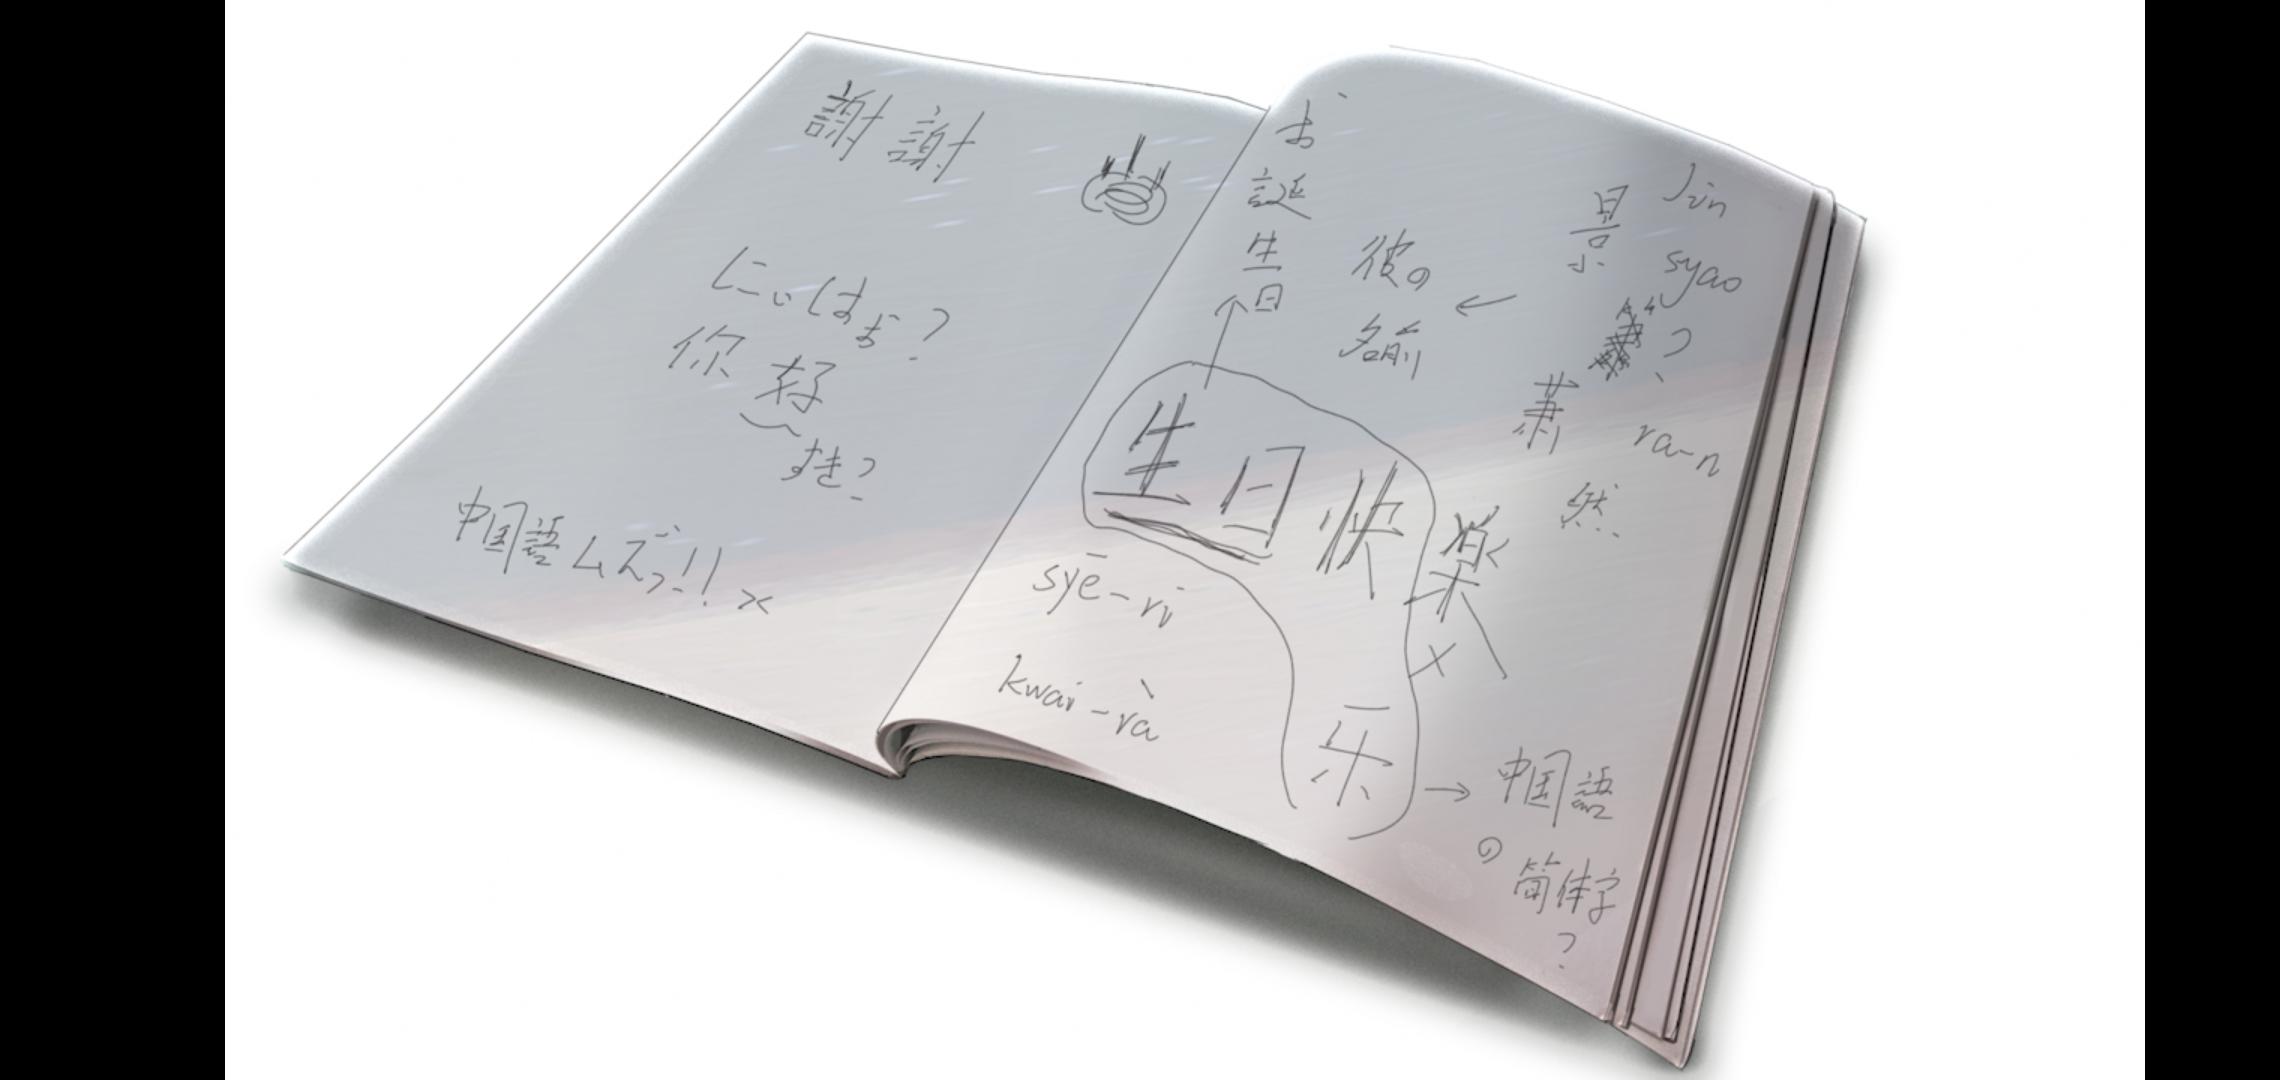 謝謝
にぃはぉ?
你好
すき?
中国語ムズっ!!×
お誕生日
彼の
名前
景
蕭
然
Jin
syao
?
ra-n
生日快楽
×
乐
syē-ri
kwai-rà
中国語
の
简体字
?